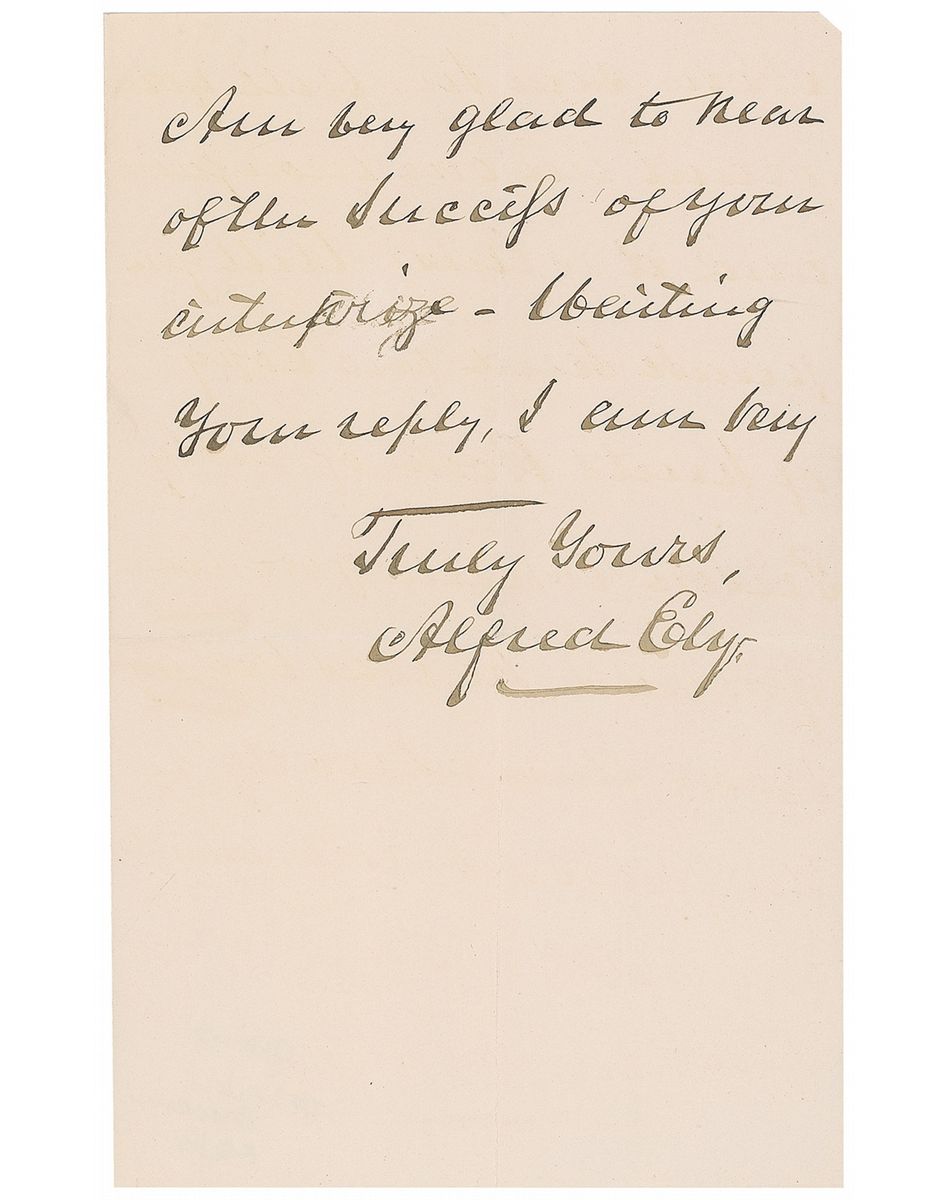 Am very glad to hear
of the Success of your
enterprize - Waiting
Your reply, I am very
Truly Yours,
Alfred Ely.